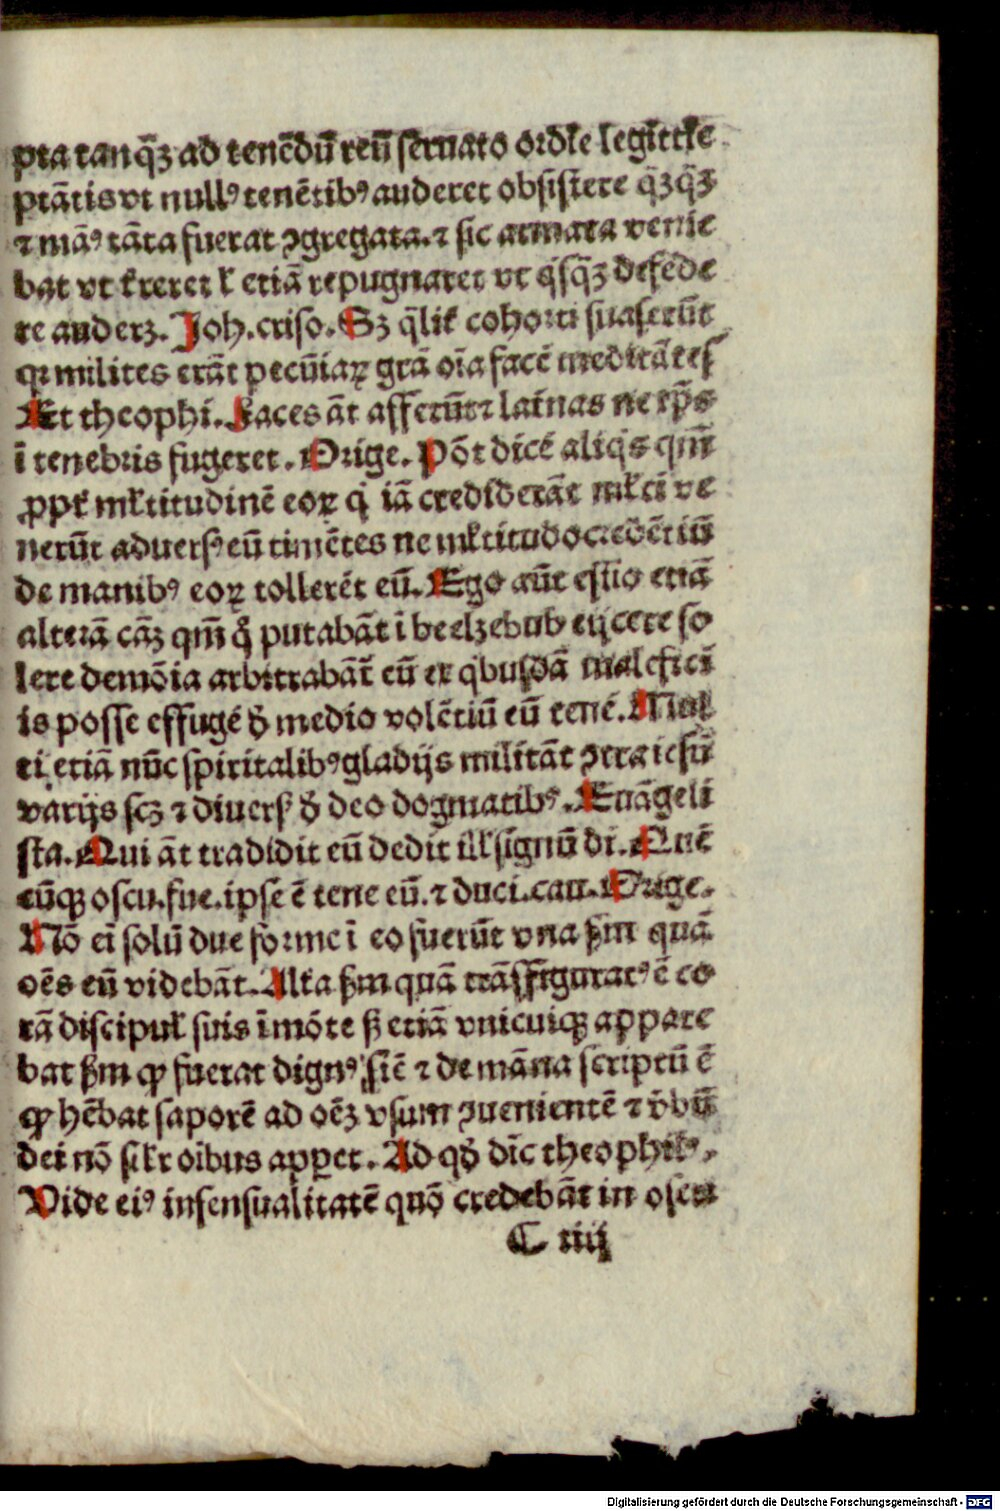 pta tanq̄ʒ ad tenēdū reū seruato ordīe legittīe
ptātis vt nullꝰ tenētibꝰ auderet obsistere q̄ʒq̄ʒ
⁊ māꝰ tāta fuerat ꝯgregata. ⁊ sic armata venie
bat vt t̄reret ł etiā repugnaret vt q̇sq̄ʒ defēde
re auderʒ. Joh. criso. Sʒ q̄lit̄ cohorti suaserūt
qꝛ milites erāt pecūiaꝝ grā oīa facē meditātes
Et theophi. Faces āt afferūt ⁊ latnas ne xp̄s
ī tenebris fugeret. Orige. Pōt dicē aliq̇s qm̄
ꝓpt̄ mƚtitudinē eoꝝ q̇ iā crediderāt mƚti ve
nerūt aduersꝰ eū timētes ne mƚtitudo credētiū
de manibꝰ eoꝝ tollerēt eū. Ego aūt estīo etiā
alterā cāʒ qm̄ q̇ putabāt ī beelzebub eijcere so
lere demōia arbitrabāt̄ eū ex q̇busdā malefici
is posse effugē ꝺ̄ medio volētiū eū tenē. Mul
ti etiā nūc spiritalibꝰ gladijs militāt ꝯtra iesū
varijs scʒ ⁊ diuersꝭ ꝺ̄ deo dogmatibꝰ. Euāgeli
sta. Qui āt tradidit eū dedit illꝭ signū di. Quē
cūqꝫ oscu. fue. ipse ē tene eū. ⁊ duci. cau. Orige.
Nō ei solū due forme ī eo fuerūt vna ẜm quā
oēs eū videbāt. Alťa ẜm quā trāsfiguratꝰ ē co
rā discipuƚ suis ī mōte ẜ etiā vnicuiqꝫ appare
bat ẜm ꝙ fuerat dignꝰ, sic̄ ⁊ de māna scriptū ē
ꝙ hēbat saporē ad oēʒ vsum ꝯuenientē ⁊ v̄bū
dei nō silr̄ oībus appet. Ad qꝺ̄ dīc theophilꝰ.
Vide eiꝰ insensualitatē quō credebāt in oscu
C iiij
Digitalisierung gefördert durch die Deutsche Forschungsgemeinschaft - DFG